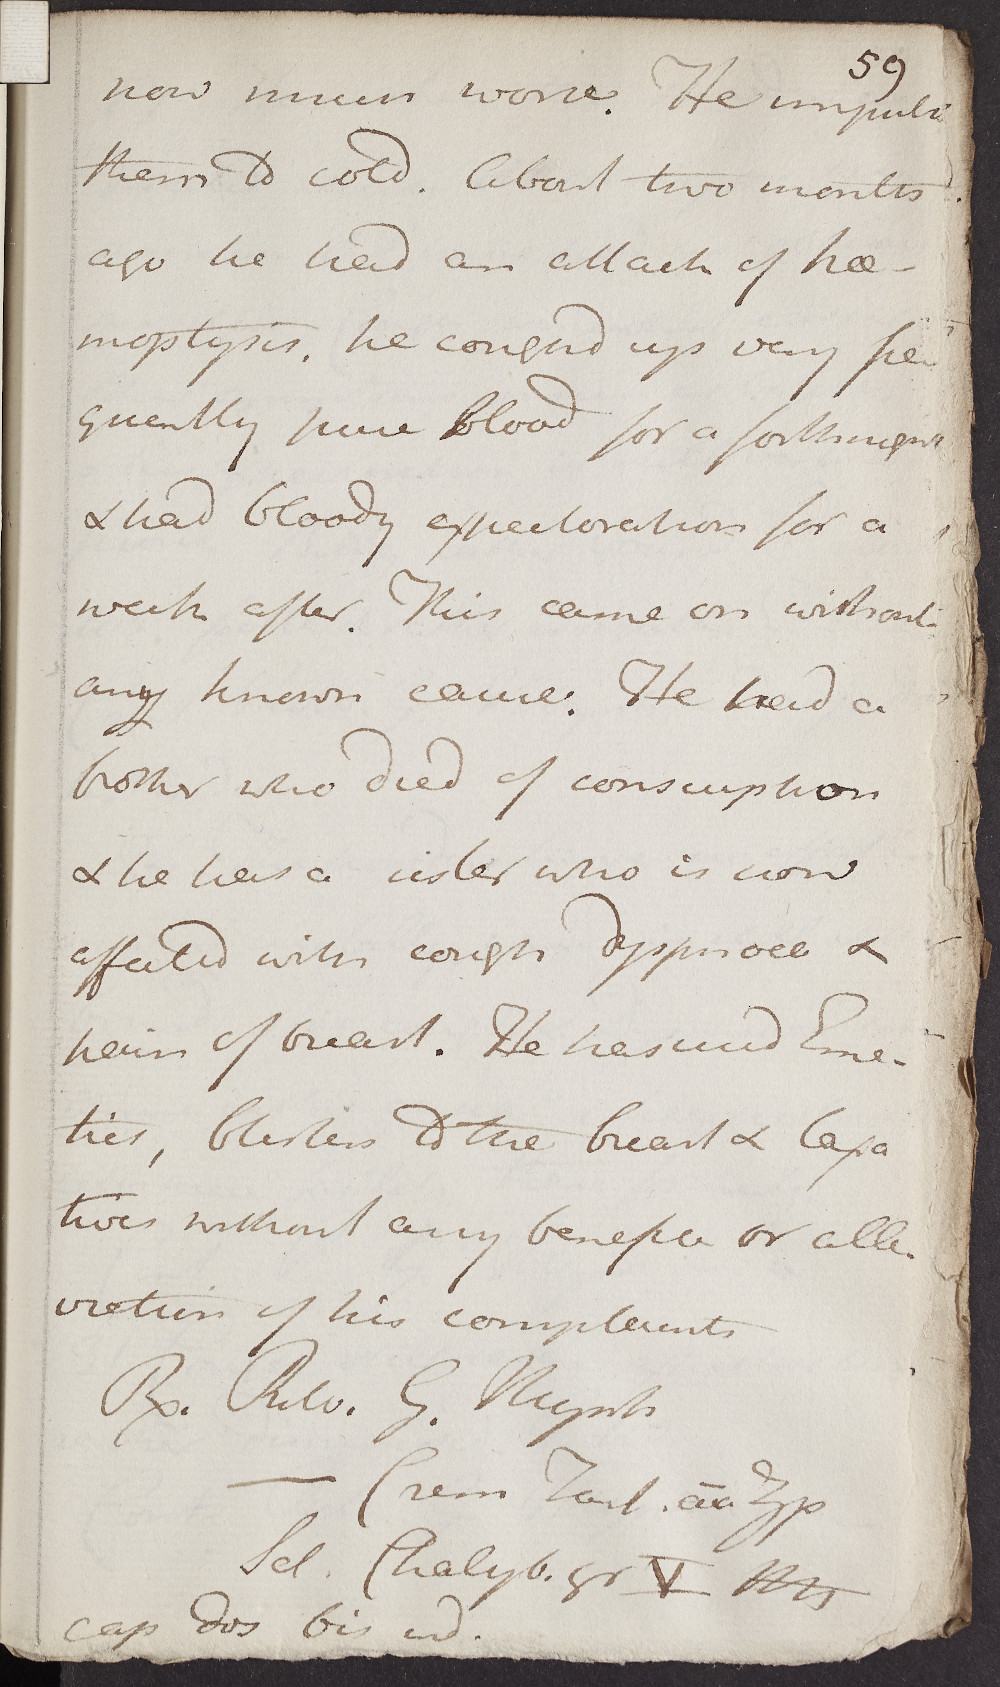 59
now much worse. He imputes
them to cold. About two months
ago he had an attack of hæ-
moptysis. he coughd up very fre
quently pure blood for a forthnight
& had bloody expectoration for a
week after. This came on without
any known cause. He had a
brother who died of consumption
& he has a sister who is now
affected with cough dyspnoea &
pain of breast. He has used Eme-
tics, blisters to the breast & laxa
tives without any benefit or alle-
viation of his complaints
Rx. Pulv. G. Myrrh
— Crem Tart. āā
Sal. Chalyb. gr V
cap dos bis ind.